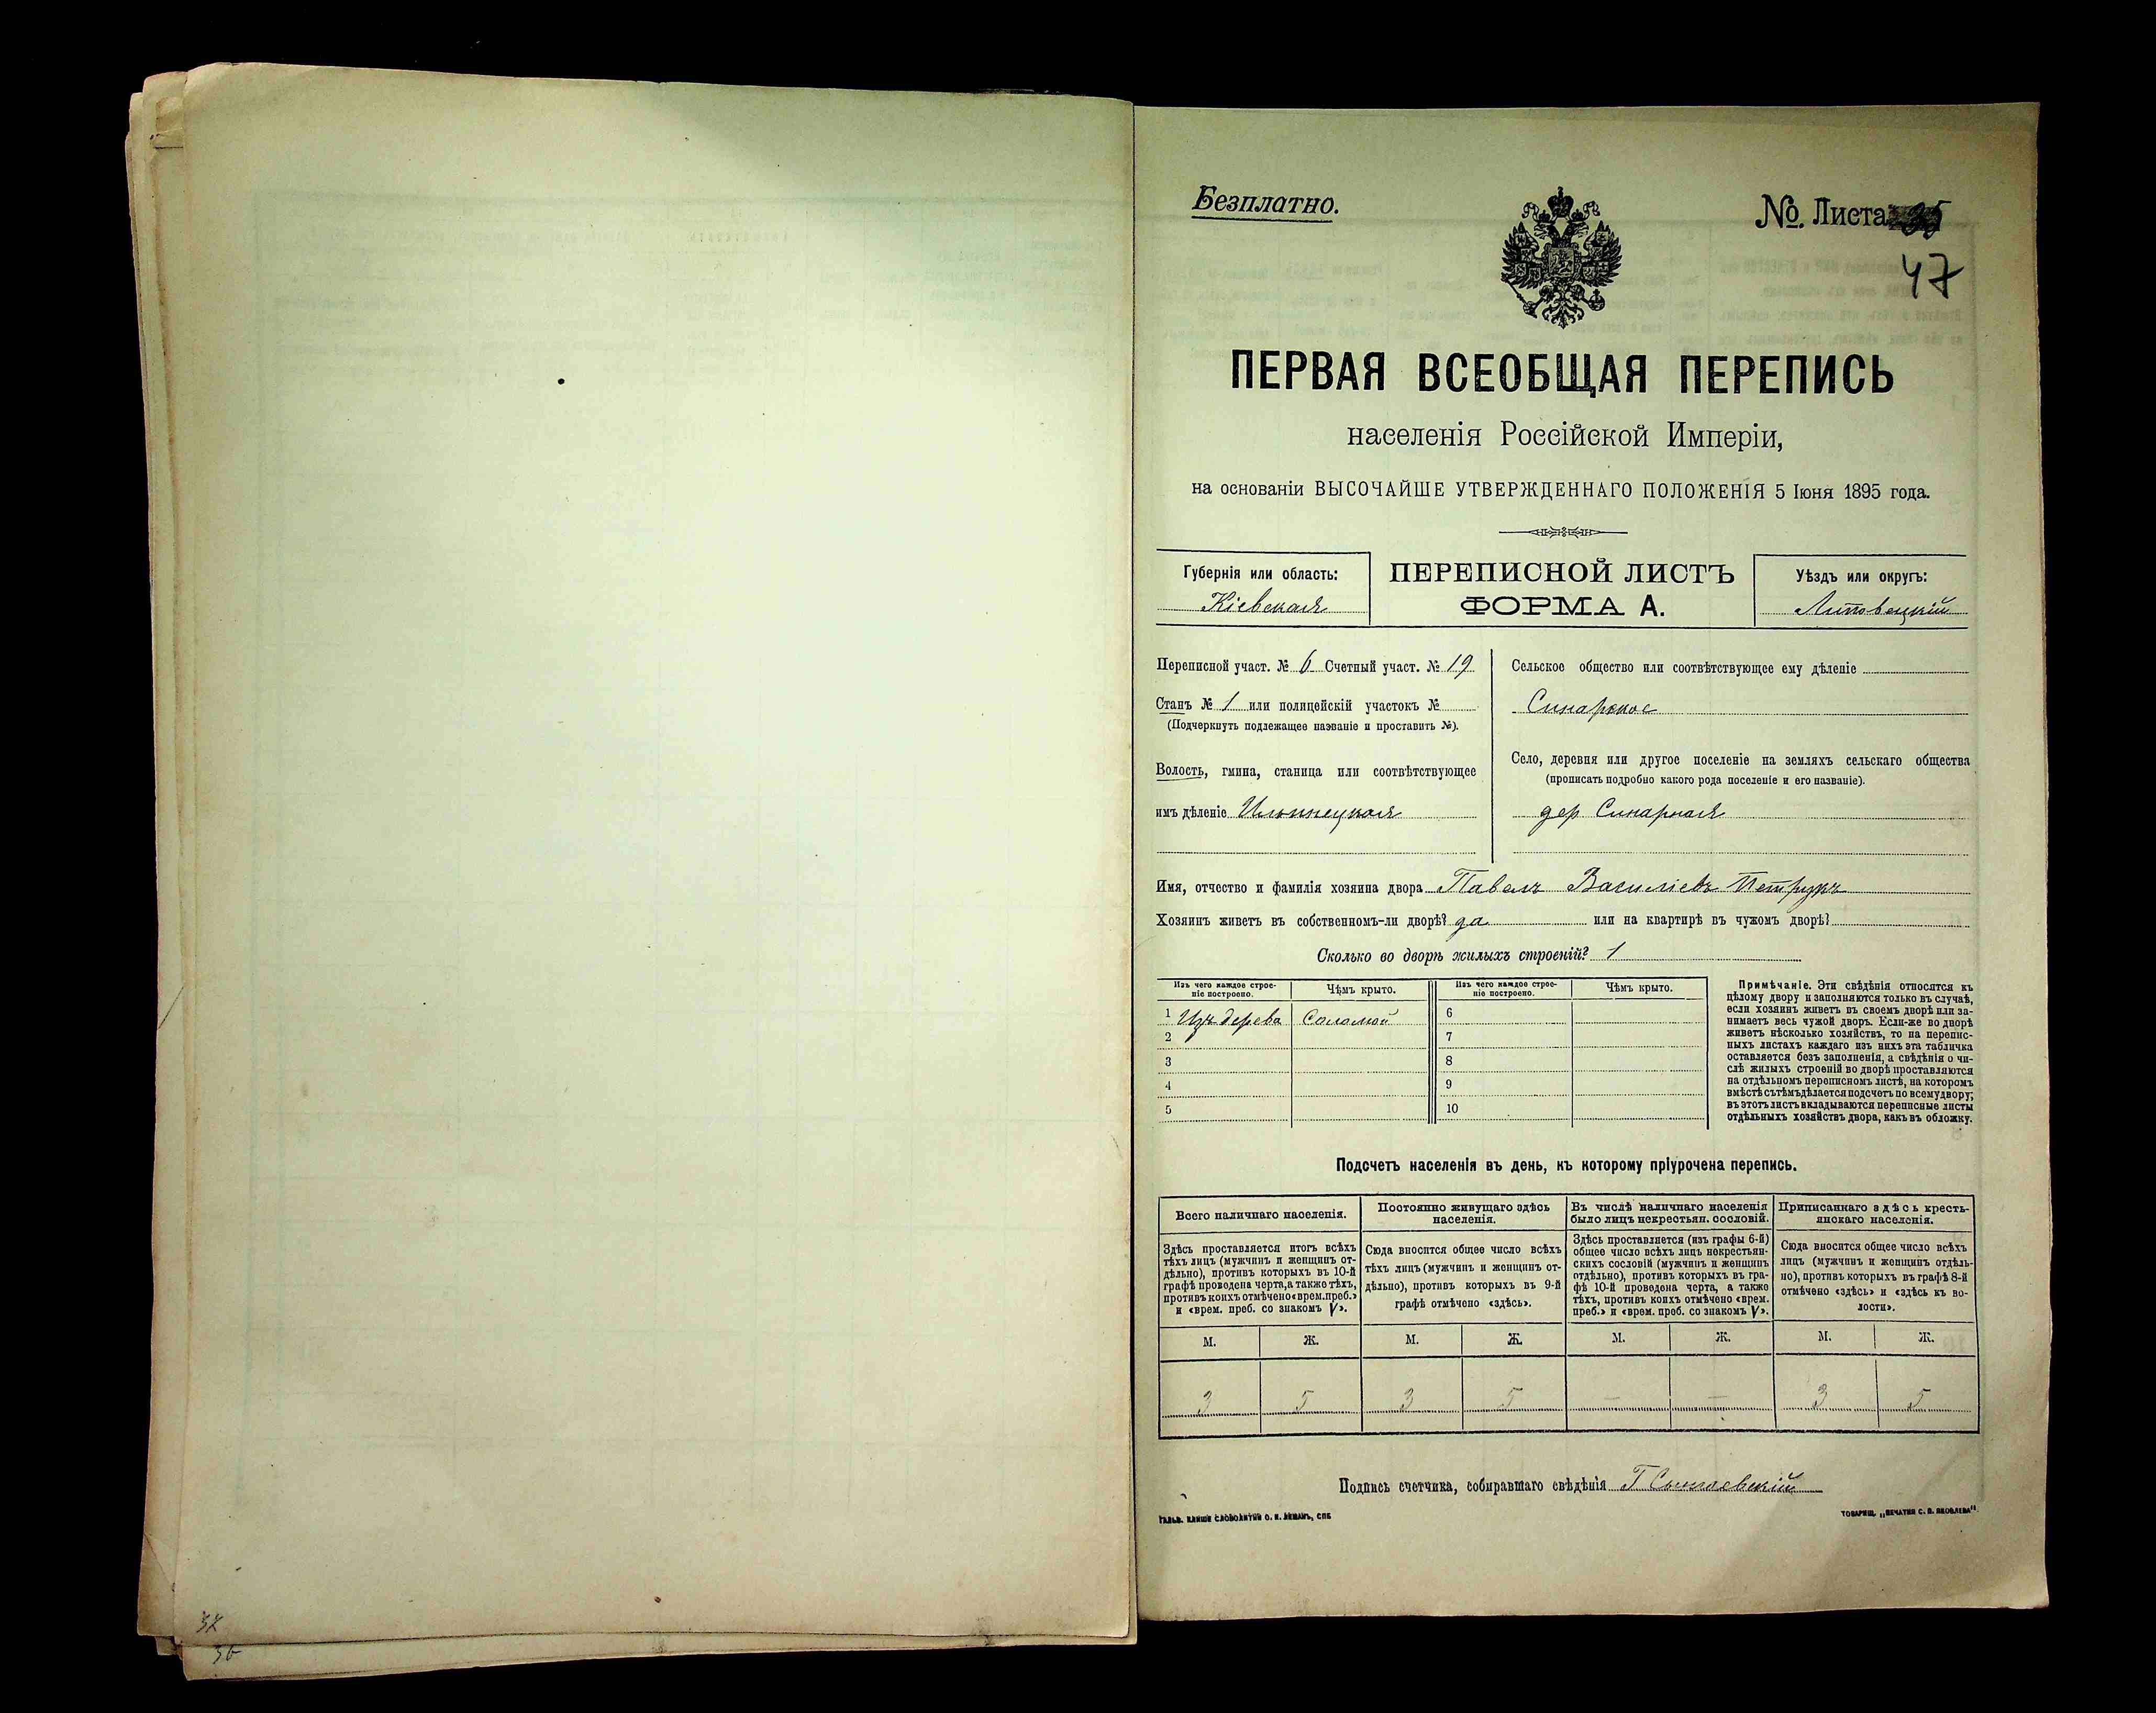 Безплатно.
№. Листа 35
47
ПЕРВАЯ ВСЕОБЩАЯ ПЕРЕПИСЬ
населенія Россійской Имперіи,
на основаніи ВЫСОЧАЙШЕ УТВЕРЖДЕННАГО ПОЛОЖЕНІЯ 5 Іюня 1895 года.
Губернія или область:
Кіевская
ПЕРЕПИСНОЙ ЛИСТЪ
ФОРМА А.
Уѣздъ или округъ:
Липовецкій
Переписной участ. № 6 Счетный участ. № 19
Станъ № 1 или полицейскій участокъ №
(Подчеркнуть подлежащее названіе и проставить №).
Волость, гмина, станица или соотвѣтствующее
имъ дѣленіе Ильинецкая
Сельское общество или соотвѣтствующее ему дѣленіе
Синарное
Село, деревня или другое поселеніе на земляхъ сельскаго общества
(прописать подробно какого рода поселеніе и его названіе).
дер Синарная
Имя, отчество и фамилія хозяина двора Павелъ Василіевъ Петрукъ
Хозяинъ живетъ въ собственномъ-ли дворѣ? да или на квартирѣ въ чужомъ дворѣ?
Сколько во дворѣ жилыхъ строеній? 1
Изъ чего каждое строе-
ніе построено.
Чѣмъ крыто.
Изъ чего каждое строе-
ніе построено.
Чѣмъ крыто.
1 Изъ дерева Соломой 6
2 7
3 8
4 9
5 10
Примѣчаніе. Эти свѣдѣнія относятся къ
цѣлому двору и заполняются только въ случаѣ,
если хозяинъ живетъ въ своемъ дворѣ или за-
нимаетъ весь чужой дворъ. Если-же во дворѣ
живетъ нѣсколько хозяйствъ, то на перепис-
ныхъ листахъ каждаго изъ нихъ эта табличка
оставляется безъ заполненія, а свѣдѣнія о чи-
слѣ жилыхъ строеній во дворѣ проставляются
на отдѣльномъ переписномъ листѣ, на которомъ
вмѣстѣ съ тѣмъ дѣлается подсчетъ по всему двору;
въ этотъ листъ вкладываются переписные листы
отдѣльныхъ хозяйствъ двора, какъ въ обложку.
Подсчетъ населенія въ день, къ которому пріурочена перепись.
Всего наличнаго населенія.
Здѣсь проставляется итогъ всѣхъ
тѣхъ лицъ (мужчинъ и женщинъ от-
дѣльно), противъ которыхъ въ 10-й
графѣ проведена черта, а также тѣхъ,
противъ коихъ отмѣчено «врем. преб.»
и «врем. преб. со знакомъ V».
Постоянно живущаго здѣсь
населенія.
Сюда вносится общее число всѣхъ
тѣхъ лицъ (мужчинъ и женщинъ от-
дѣльно), противъ которыхъ въ 9-й
графѣ отмѣчено «здѣсь».
Въ числѣ наличнаго населенія
было лицъ некрестьян. сословій.
Здѣсь проставляется (изъ графы 6-й)
общее число всѣхъ лицъ некрестьян-
скихъ сословій (мужчинъ и женщинъ
отдѣльно), противъ которыхъ въ гра-
фѣ 10-й проведена черта, а также
тѣхъ, противъ коихъ отмѣчено «врем.
преб.» и «врем. преб. со знакомъ V».
Приписаннаго здѣсь кресть-
янскаго населенія.
Сюда вносится общее число всѣхъ
лицъ (мужчинъ и женщинъ отдѣль-
но), противъ которыхъ въ графѣ 8-й
отмѣчено «здѣсь» и «здѣсь къ во-
лости».
М. Ж. М. Ж. М. Ж. М. Ж.
3 5 3 5 — — 3 5
Подпись счетчика, собиравшаго свѣдѣнія Г
ТОВАРИЩ. „ПЕЧАТНЯ С. П. ЯКОВЛЕВА"
36